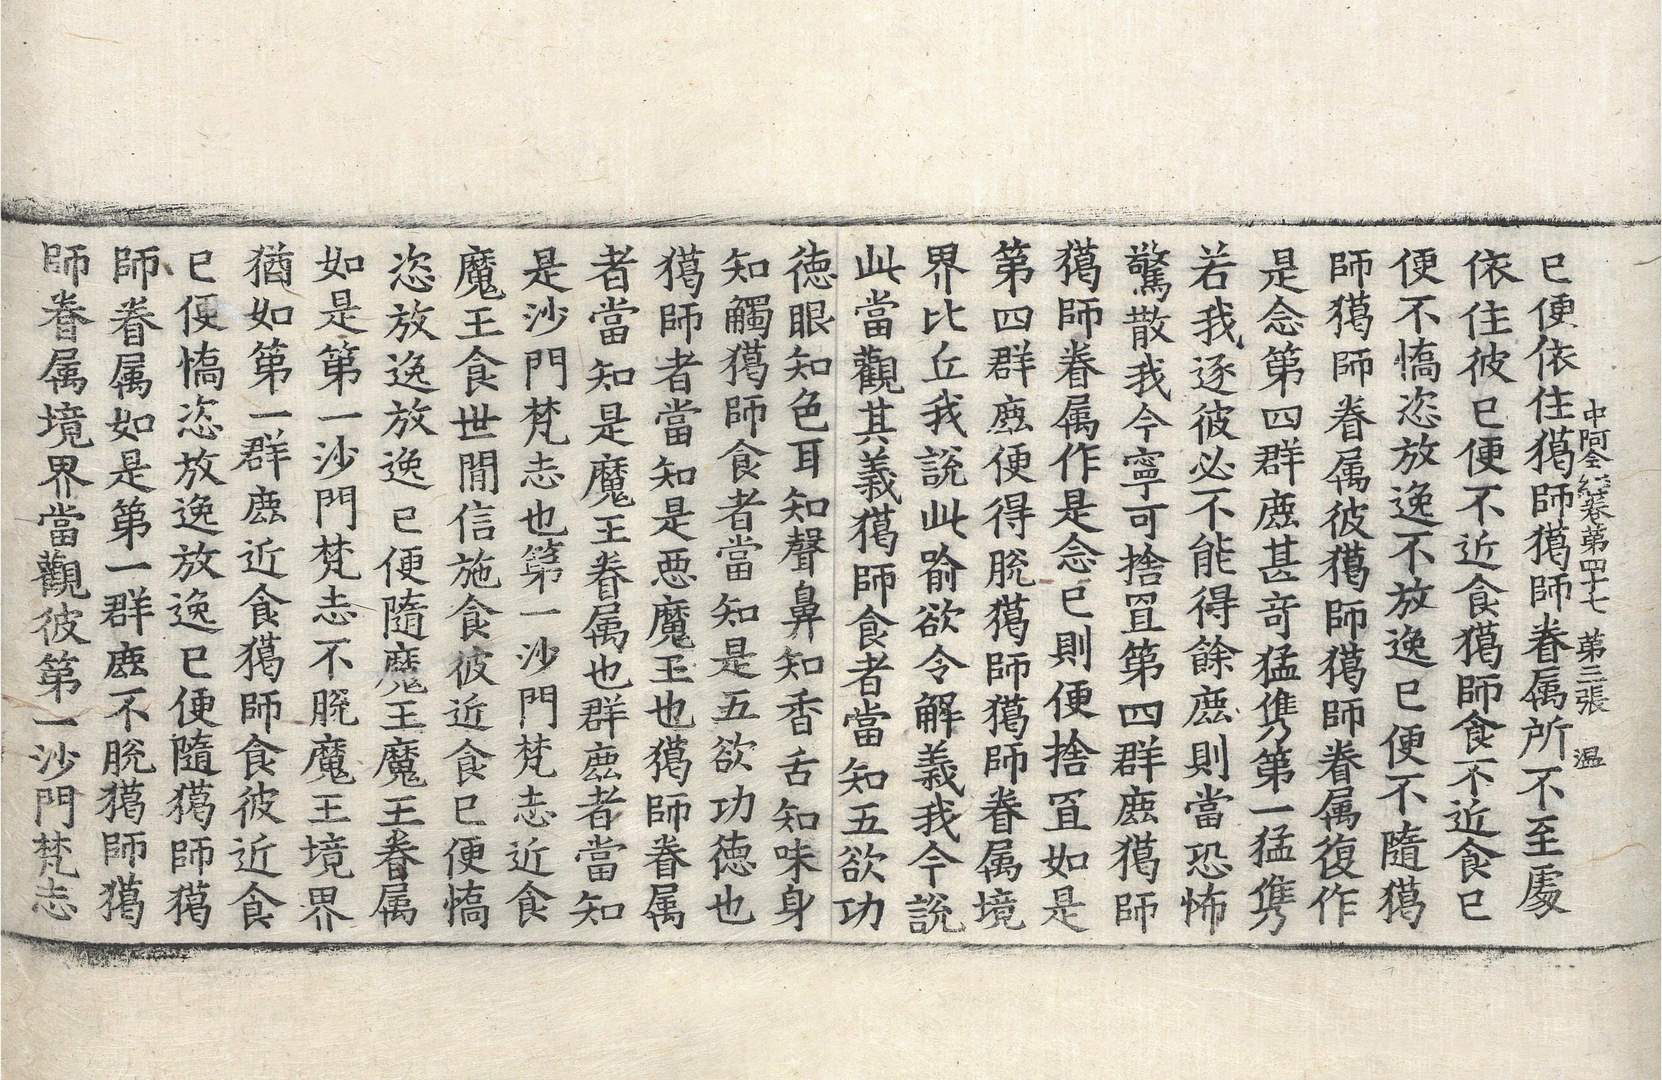 中阿含經卷第四十七 第三張 溫
已便依住獦師獦師眷属所不至處
依住彼已便不近食獦師食不近食已
便不憍恣放逸不放逸已便不隨獦
師獦師眷属彼獦師獦師眷属復作
是念第四群鹿甚竒猛㑺第一猛㑺
若我逐彼必不能得餘鹿則當恐怖
驚散我今寧可捨罝第四群鹿獦師
獦師眷属作是念已則便捨罝如是
第四群鹿便得脫獦師獦師眷属境
界比丘我說此喻欲令解義我今說
此當觀其義獦師食者當知五欲功
徳眼知色耳知聲鼻知香舌知味身
知觸獦師食者當知是五欲功徳也
獦師者當知是悪魔王也獦師眷属
者當知是魔王眷属也群鹿者當知
是沙門梵志也第一沙門梵志近食
魔王食世間信施食彼近食已便憍
恣放逸放逸已便隨魔王魔王眷属
如是第一沙門梵志不脫魔王境界
猶如第一群鹿近食獦師食彼近食
已便憍恣放逸放逸已便隨獦師獦
師眷属如是第一群鹿不脫獦師獦
師眷属境界當觀彼第一沙門梵志